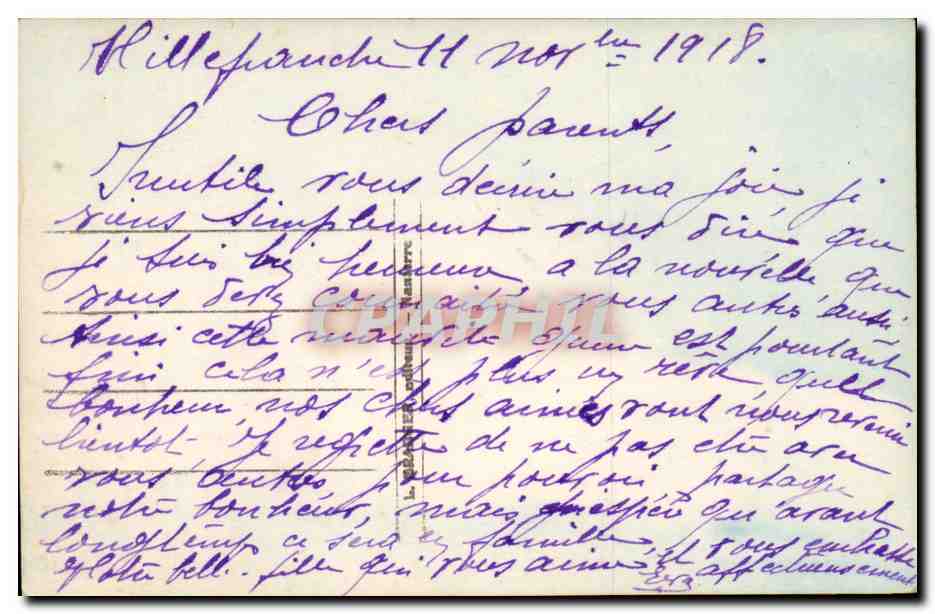 Villefranche 11 novbre 1918.
Chers parents,
Inutile vous décrire ma joie, je
viens simplement vous dire que
je suis bien heureuse a la nouvelle que
vous devez connaitre vous autres aussi
Ainsi cette maudite guerre est pourtant
fini cela n'est plus un rêve quel
bonheur, nos chers aimés vont nous revenir
bientot. Je regrette de ne pas etre avec
vous autres pour pouvoir partager
notre bonheur, mais j'espère qu'avant
longtemps ce sera en famille, et vous embrasse
Votre belle-fille qui vous aime affectueusement
L. BRAUNER, éditeur - Nanterre
CPAPHIL